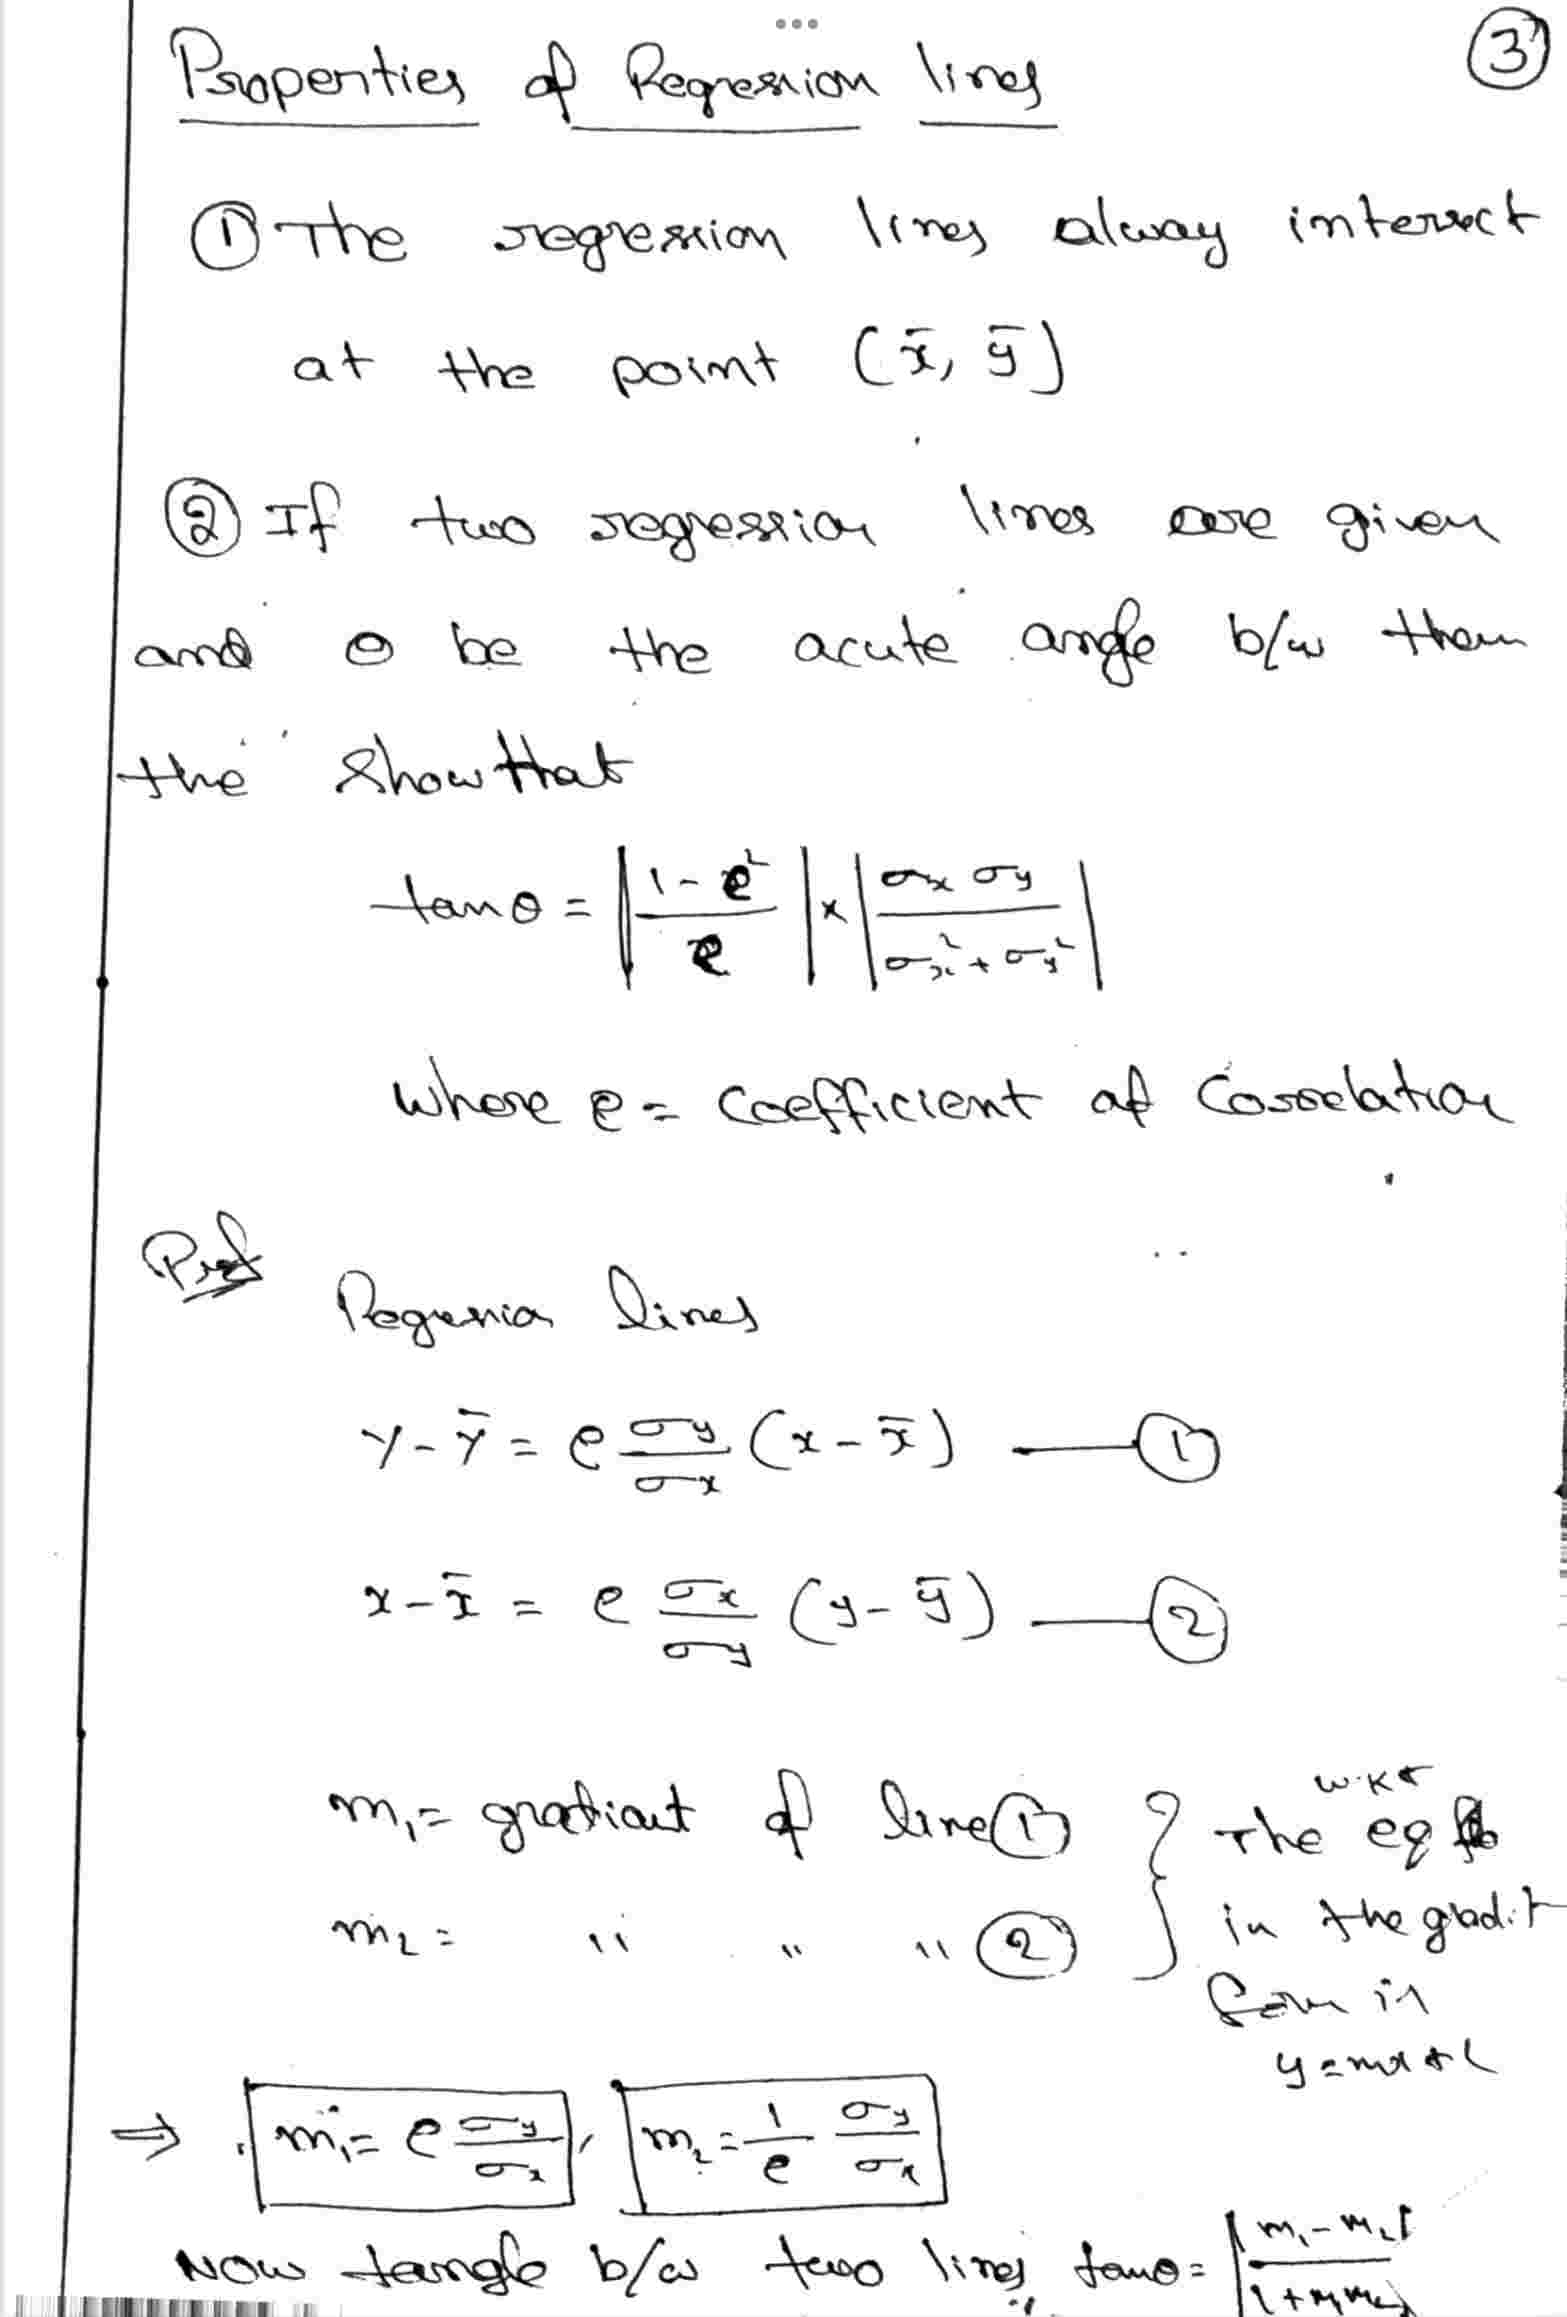 Properties of Regression lines ③
① The regression lines alway intersect
at the point (x̄, ȳ)
② If two regression lines are given
and θ be the acute angle b/w them
the Show that
tan θ = |(1-ρ²)/ρ| × |(σx σy)/(σx² + σy²)|
where ρ = Coefficient of Correlation
Proof
Regression lines
y - ȳ = ρ σy/σx (x - x̄) — ①
x - x̄ = ρ σx/σy (y - ȳ) — ②
m₁ = gradient of line ①
m₂ = " " " ②
w.k.t
The eq
in the gradit
form is
y = mx + c
⇒ m₁ = ρ σy/σx , m₂ = 1/ρ σy/σx
Now tangle b/w two lines tan θ = |(m₁ - m₂)/(1 + m₁m₂)|